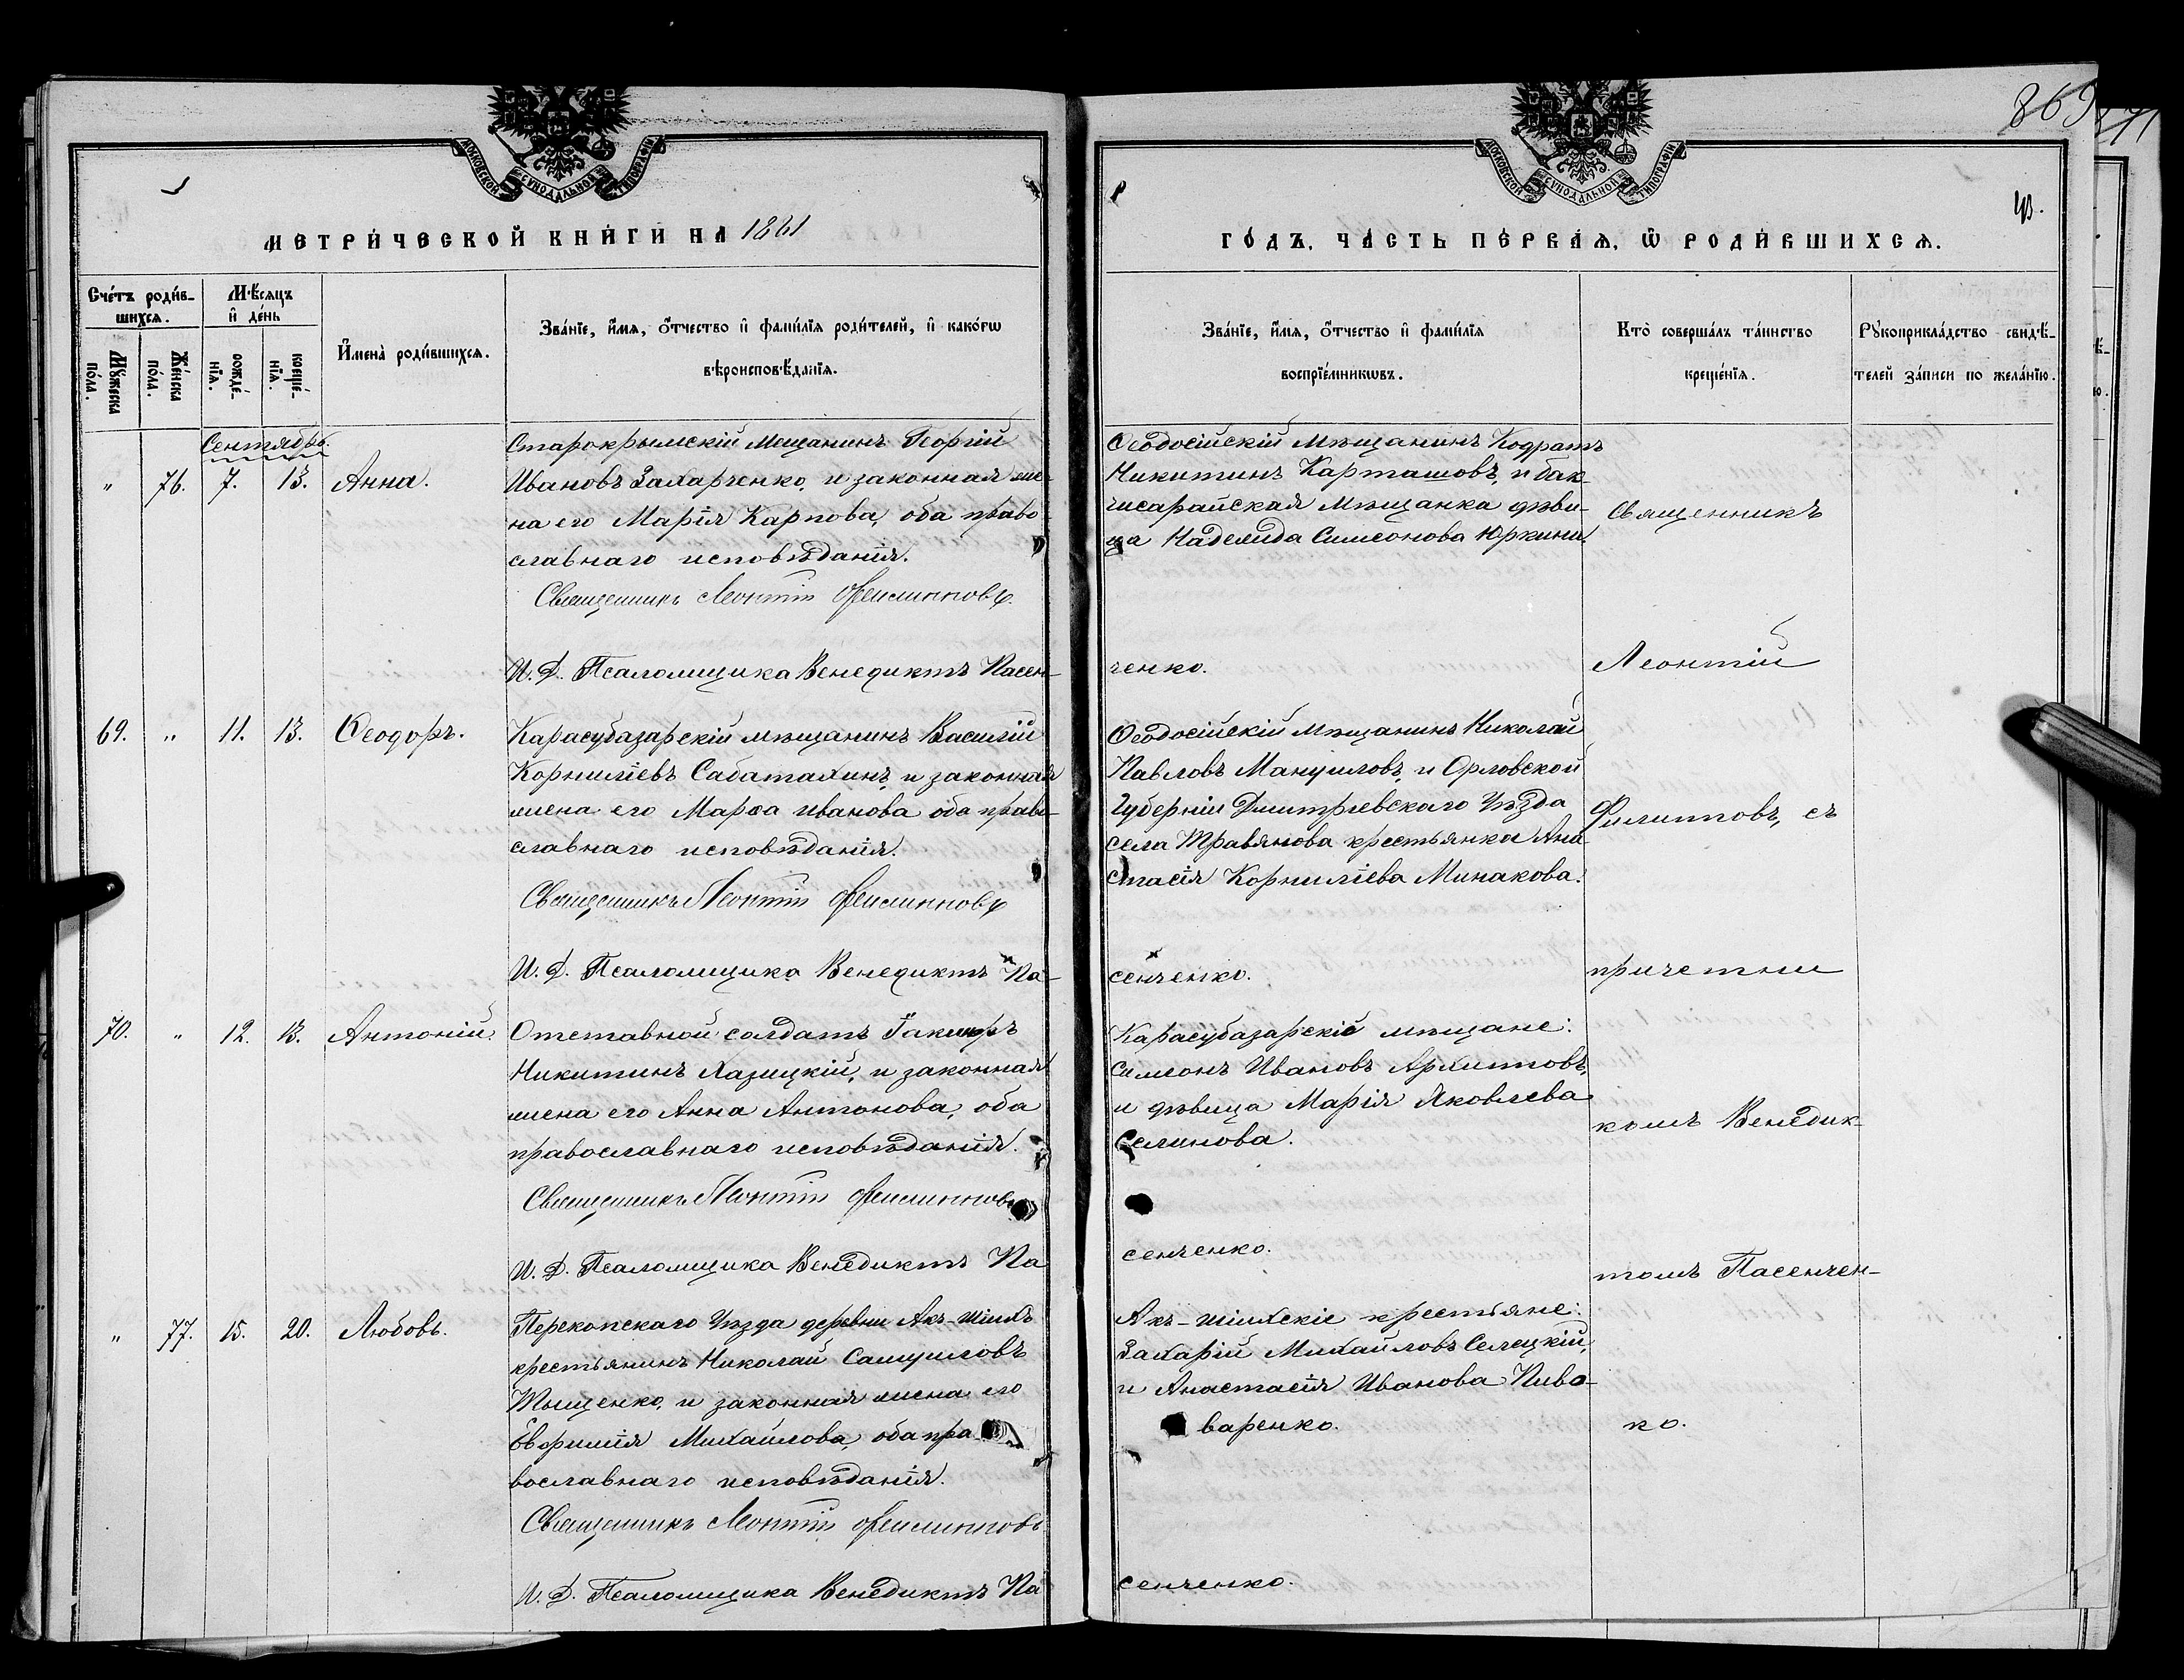 869
МОСКОВСКОЙ СѴНОДАЛЬНОЙ ТИПОГРАФІИ
МОСКОВСКОЙ СѴНОДАЛЬНОЙ ТИПОГРАФІИ
МЕТРИ́ЧЕСКОЙ КНИ́ГИ НА 1881
ГО́ДЪ, ЧА́СТЬ ПЕ́РВАѦ, Ѡ РОДИ́ВШИХСѦ.
Сче́тъ роди́в-
шихсѧ.
Мꙋ́жеска по́ла.
Же́нска по́ла.
Мѣ́сѧцъ
и҆ де́нь
рожде́-нїѧ.
креще́-нїѧ.
И҆мена̀ роди́вшихсѧ.
Зва́нїе, и҆́мѧ, ѻ҆́тчество и҆ фами́лїѧ роди́телей, и҆ како́гѡ
вѣроисповѣ́данїѧ.
Зва́нїе, и҆́мѧ, ѻ҆́тчество и҆ фами́лїѧ
воспрїе́мникѡвъ.
Кто̀ соверша́лъ та́инство
креще́нїѧ.
Рꙋкоприкла́дство свидѣ́-
телей за́писи по жела́нїю.
Сентябрь.
" 76. 7. 13. Анна.
Старокрымскій Мещанинъ Георгій
Ивановъ Захарченко, и законная же-
на его Марія Карпова, оба право
славнаго исповѣданія.
Священникъ Леонтій Филипповъ.
И. Д. Псаломщика Венедиктъ Пасен-
Ѳеодосійскій Мѣщанинъ Кодратъ
Никитинъ Карташовъ, и бак-
чисарайская Мѣщанка дѣви-
ца Надежда Симеонова Юркина
ченко.
69. " 11. 13. Ѳеодоръ.
Карасубазарскій мѣщанинъ Василій
Корниліевъ Сабатахинъ, и законная
жена его Марѳа Иванова оба право-
славнаго исповѣданія.
Священникъ Леонтій Филипповъ
И. Д. Псаломщика Венедиктъ Па-
Ѳеодосійскій Мѣщанинъ Николай
Павловъ Мануиловъ, и Орловской
Губерніи Дмитріевскаго Уѣзда
села Травянова крестьянка Ана-
стасія Корниліева Минакова.
сенченко.
70. " 12. 13. Антоній.
Отставной солдатъ
Никитинъ Хазицкій, и законная
жена его Анна Антонова, оба
православнаго исповѣданія.
Священникъ Леонтій Филипповъ
И. Д. Псаломщика Венедиктъ Па
Карасубазарскіе мѣщане:
Симеонъ Ивановъ Архиповъ,
и дѣвица Марія Яковлева
Селинова.
сенченко.
" 77. 15. 20. Любовь.
Перекопскаго Уѣзда деревни Акъ-Шіихъ
крестьянинъ Николай Самуиловъ
Тыщенко, и законная жена его
Евфимія Михайлова, оба пра
вославнаго исповѣданія.
Священникъ Леонтій Филипповъ
И. Д. Псаломщика Венедиктъ Па
Акъ-Шіихскіе крестьяне:
Захарій Михайловъ Селецкій,
и Анастасія Иванова Пиво-
варенко.
сенченко.
Священникъ
Леонтій
Филипповъ, съ
причетни
комъ Венедик-
томъ Пасенчен-
ко.